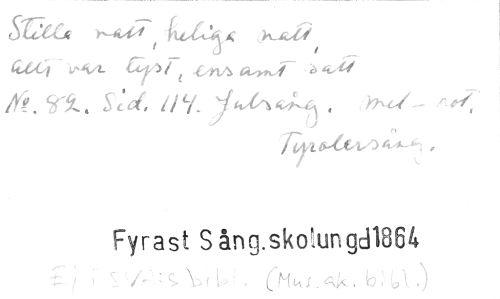 Stilla natt, heliga natt,
allt var tyst, ensamt satt
No. 82. Sid. 114. Julsång. mel-not.
Tyrolersång.
Fyrast Sång.skolungd1864
Ej i SVA:s bibl. (Mus.ak.bibl.)